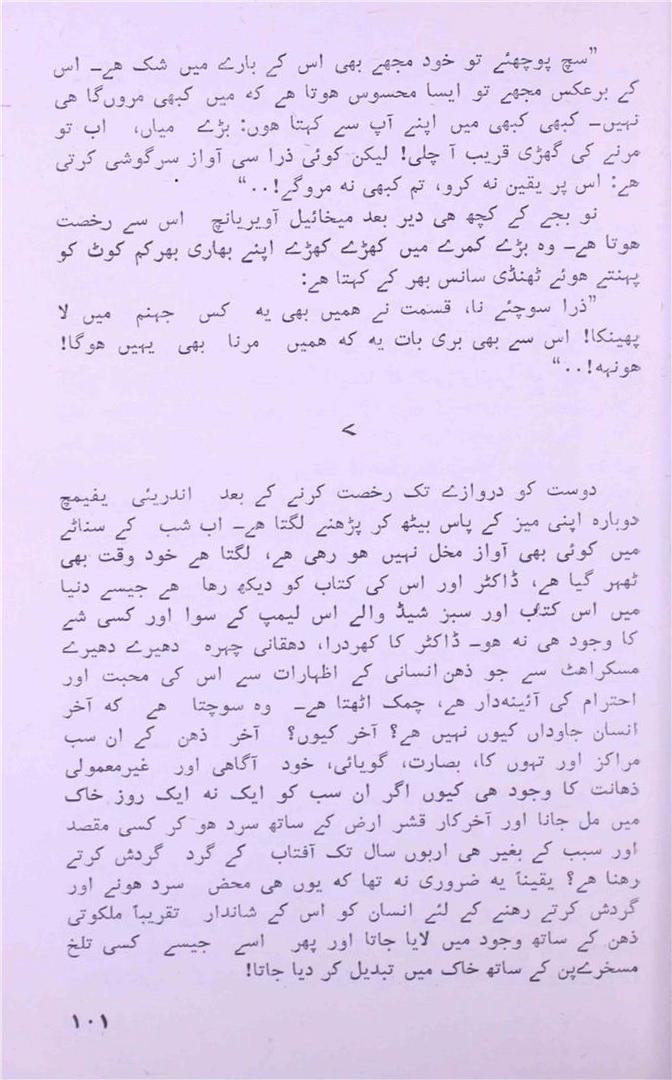 ”سچ پوچھئے تو خود مجھے بھی اس کے بارے میں شک ہے۔ اس
کے برعکس مجھے تو ایسا محسوس ہوتا ہے کہ میں کبھی مروں گا ہی
نہیں۔ کبھی کبھی میں اپنے آپ سے کہتا ہوں: بڑے میاں، اب تو
مرنے کی گھڑی قریب آ چلی! لیکن کوئی ذرا سی آواز سرگوشی کرتی
ہے: اس پر یقین نہ کرو، تم کبھی نہ مروگے!..“
نو بجے کے کچھ ہی دیر بعد میخائیل آویریانچ اس سے رخصت
ہوتا ہے۔ وہ بڑے کمرے میں کھڑے کھڑے اپنے بھاری بھرکم کوٹ کو
پہنتے ہوئے ٹھنڈی سانس بھر کے کہتا ہے:
”ذرا سوچئے نا، قسمت نے ہمیں بھی یہ کس جہنم میں لا
پھینکا! اس سے بھی بری بات یہ کہ ہمیں مرنا بھی یہیں ہوگا!
ہونہہ!..“
۷
دوست کو دروازے تک رخصت کرنے کے بعد اندریئی یفیمچ
دوبارہ اپنی میز کے پاس بیٹھ کر پڑھنے لگتا ہے۔ اب شب کے سناٹے
میں کوئی بھی آواز مخل نہیں ہو رہی ہے، لگتا ہے خود وقت بھی
ٹھہر گیا ہے، ڈاکٹر اور اس کی کتاب کو دیکھ رہا ہے جیسے دنیا
میں اس کتاب اور سبز شیڈ والے اس لیمپ کے سوا اور کسی شے
کا وجود ہی نہ ہو۔ ڈاکٹر کا کھردرا، دہقانی چہرہ دھیرے دھیرے
مسکراہٹ سے جو ذہن انسانی کے اظہارات سے اس کی محبت اور
احترام کی آئینہ دار ہے، چمک اٹھتا ہے۔ وہ سوچتا ہے کہ آخر
انسان جاوداں کیوں نہیں ہے؟ آخر کیوں؟ آخر ذہن کے ان سب
مراکز اور تہوں کا، بصارت، گویائی، خود آگاہی اور غیرمعمولی
ذہانت کا وجود ہی کیوں اگر ان سب کو ایک نہ ایک روز خاک
میں مل جانا اور آخرکار قشر ارض کے ساتھ سرد ہو کر کسی مقصد
اور سبب کے بغیر ہی اربوں سال تک آفتاب کے گرد گردش کرتے
رہنا ہے؟ یقیناً یہ ضروری نہ تھا کہ یوں ہی محض سرد ہونے اور
گردش کرتے رہنے کے لئے انسان کو اس کے شاندار تقریباً ملکوتی
ذہن کے ساتھ وجود میں لایا جاتا اور پھر اسے جیسے کسی تلخ
مسخرےپن کے ساتھ خاک میں تبدیل کر دیا جاتا!
۱۰۱